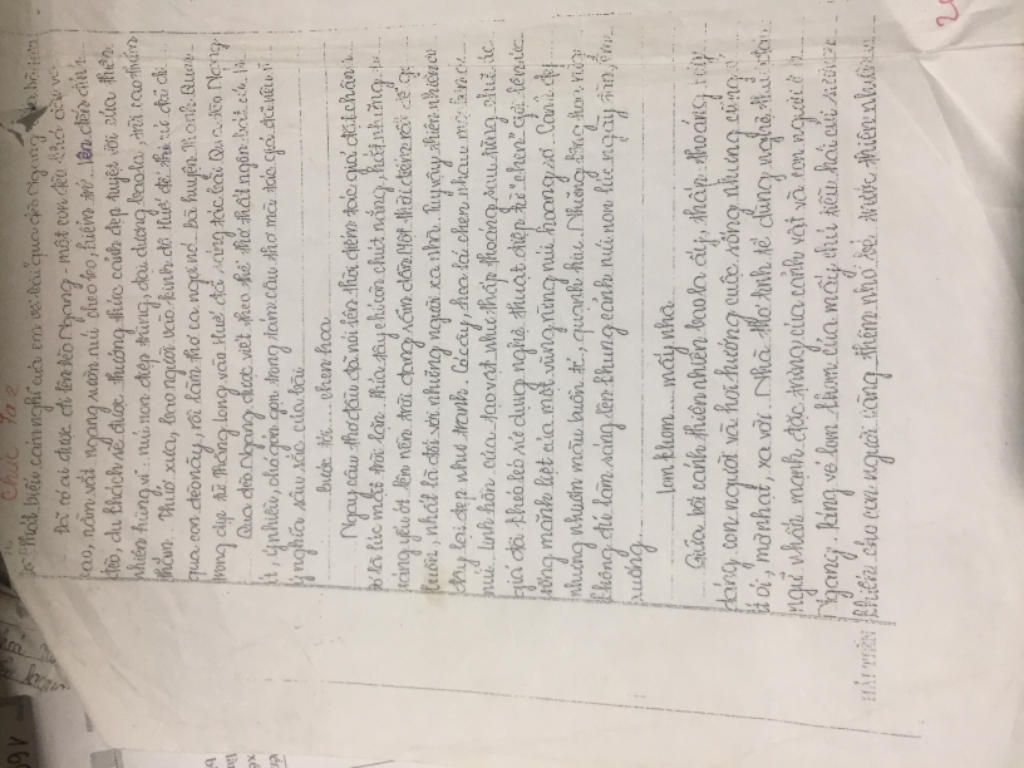 Chúc 7a2
Phát biểu cảm nghĩ của em về bài qua đèo Ngang
Đã có ai được đi lên đèo Ngang - một con đèo khá cao và
cao, nằm vắt ngang sườn núi cheo leo, hiểm trở. lên đến đỉnh
đèo, du khách sẽ được thưởng thức cảnh đẹp tuyệt vời của thiên
nhiên hùng vĩ: núi non điệp trùng, đại dương bao la, trời cao thăm
thẳm. Thuở xưa, bao người vào kinh đô Huế để thi cử phải đi
qua con đèo này, rồi làm thơ ca ngợi nó. Bà huyện Thanh Quan
trong dịp từ Thăng Long vào Huế đã sáng tác bài Qua đèo Ngang
Qua đèo Ngang được viết theo thể thơ thất ngôn bát cú, lời
ít, ý nhiều, chỉ gọn gọn trong tám câu thơ mà tác giả đã nêu rõ
ý nghĩa sâu sắc của bài
Bước tới ... chen hoa
Ngay câu thơ đầu đã nói lên thời điểm tác giả đặt chân
đó là lúc mặt trời lặn. Phía tây chỉ còn chút nắng, hắt những
vàng yếu ớt lên nền trời đang sẫm dần. Một thời điểm rất dễ gợi
buồn, nhất là đối với những người xa nhà. Tuy vậy thiên nhiên ở
đây lại đẹp như tranh. Cỏ cây, hoa lá chen nhau mọc
núi. Linh hồn của tạo vật như thấp thoáng sau từng chi tiết. Tác
giả đã khéo léo sử dụng nghệ thuật điệp từ "chen" gợi lên sức
sống mãnh liệt của một vùng rừng núi hoang sơ. Cảnh đẹp
nhưng nhuốm màu buồn tẻ, quạnh hiu. Những bông hoa rừng
không đủ làm sáng lên khung cảnh núi non lúc ngày tàn,
xuống.
lom khom ... mấy nhà
Giữa bời cảnh thiên nhiên bao la ấy, thấp thoáng
dáng con người và hơi hướng cuộc sống nhưng cũng
ít ỏi, mờ nhạt, xa vời. Nhà thơ tinh tế dùng nghệ thuật đảo
ngữ nhấn mạnh đặc trưng của cảnh vật và con người ở
Ngang. Dáng vẻ lom khom của mấy chú tiều hái củi sườn non
khiến cho con người càng thêm nhỏ bé trước thiên nhiên
HẢI TIẾN